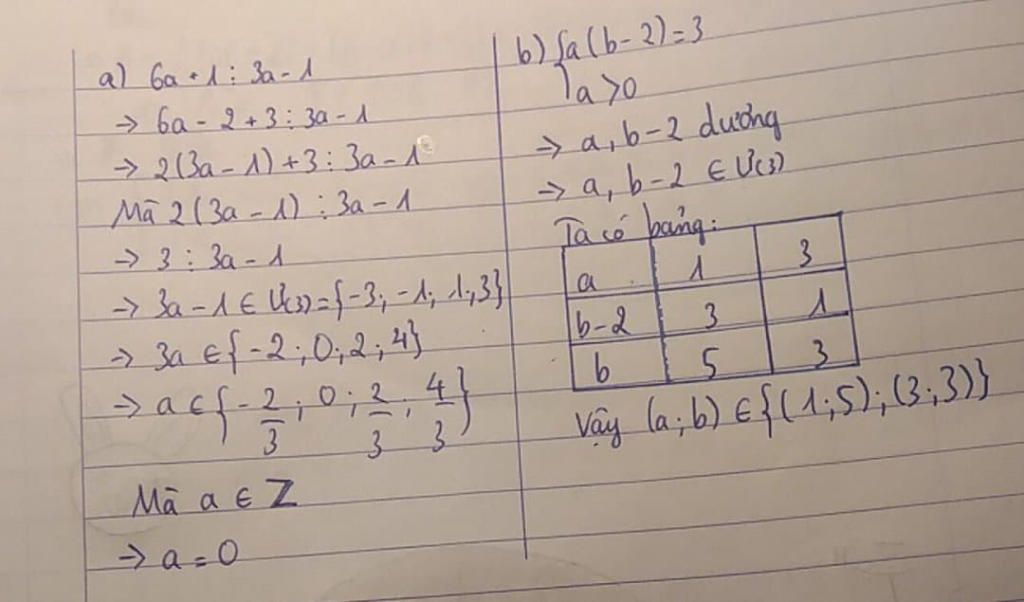 a) 6a + 1 ⋮ 3a - 1
→ 6a - 2 + 3 ⋮ 3a - 1
→ 2(3a - 1) + 3 ⋮ 3a - 1
Mà 2(3a - 1) ⋮ 3a - 1
→ 3 ⋮ 3a - 1
→ 3a - 1 ∈ Ư(3) = {-3; -1; 1; 3}
→ 3a ∈ {-2; 0; 2; 4}
→ a ∈ {-2/3; 0; 2/3; 4/3}
Mà a ∈ Z
→ a = 0
b) { a(b - 2) = 3
a > 0
→ a, b - 2 dương
→ a, b - 2 ∈ Ư(3)
Ta có bảng:
a 1 3
b-2 3 1
b 5 3
Vậy (a; b) ∈ {(1; 5); (3; 3)}